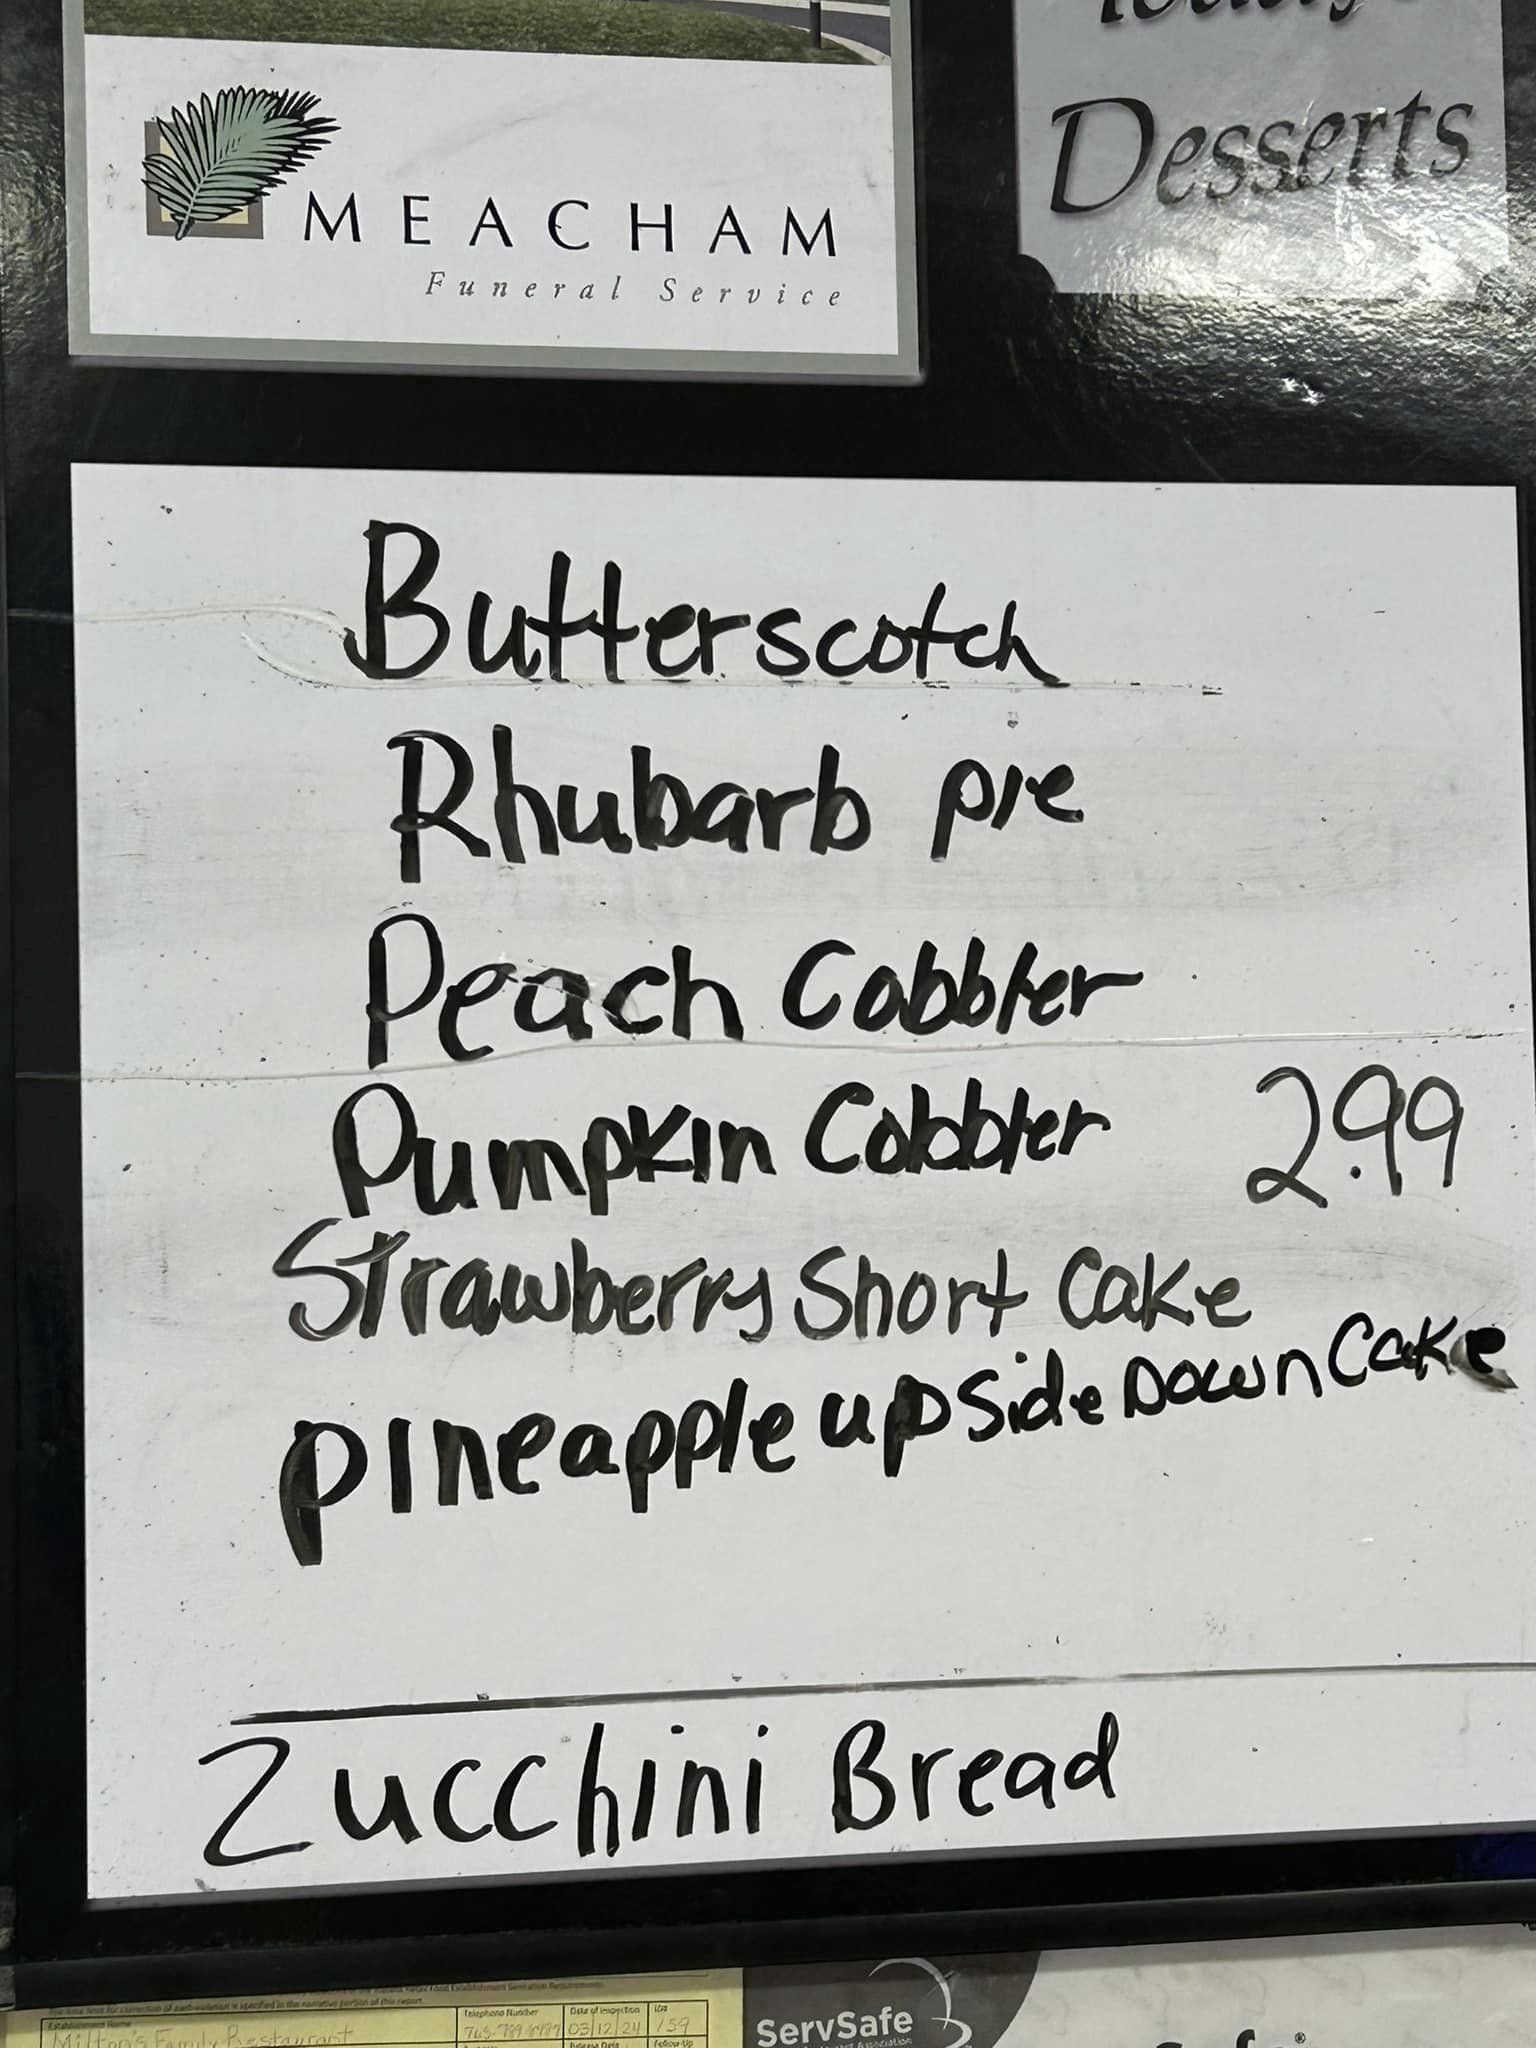 Desserts
MEACHAM
Funeral Service
Butterscotch
Rhubarb pie
Peach Cobbler
Pumpkin Cobbler 2.99
Strawberry Short Cake
Pineapple upside Down Cake
Zucchini Bread
Establishment Name
Telephone Number
Date of Inspection
ID#
Milton's Family Restaurant
03/12/24
159
Follow-Up
ServSafe